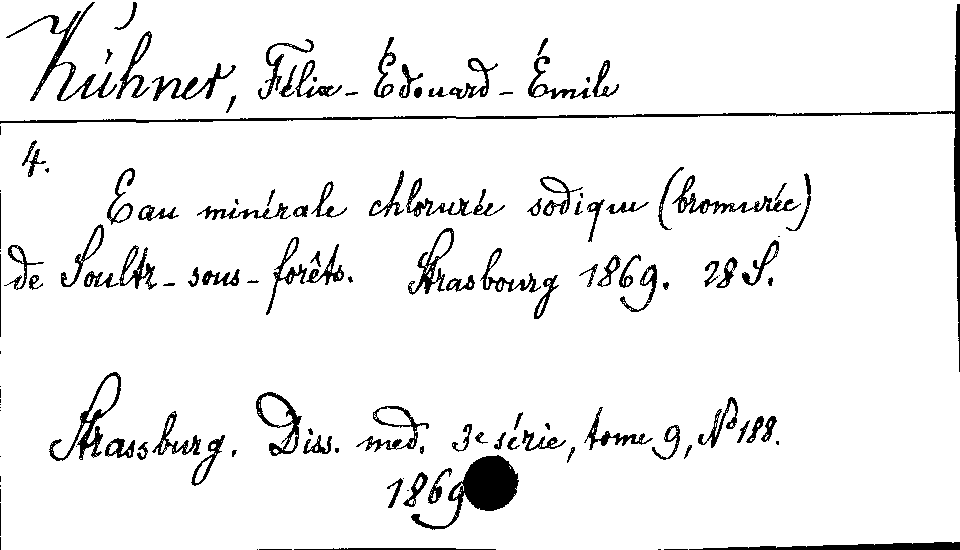 Kühner, Félix-Édouard-Émile
4.
Eau minérale chlorurée sodique (bromurée)
de Soultz-sous-forêts. Strasbourg 1869. 28 S.
Strassburg. Diss. med. 3e série, tome 9, No 188.
1869